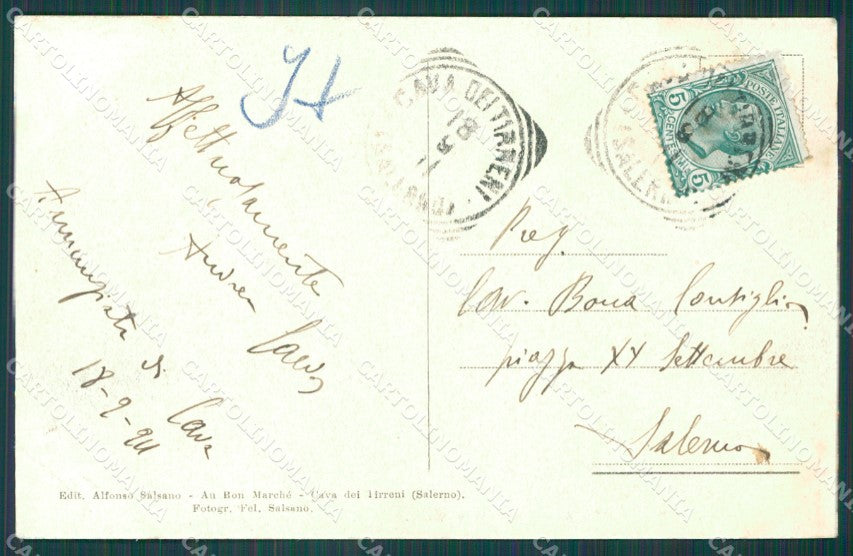 Affettuosamente
Andrea
Annunziata di Cava
18-9-911
CAVA DEI TIRRENI
(SALERNO)
18
9
POSTE ITALIANE
5
CENTESIMI
5
Preg.
Cav. Bona Consiglio
piazza XX Settembre
Salerno
Edit. Alfonso Salsano - Au Bon Marché - Cava dei Tirreni (Salerno).
Fotogr. Fel. Salsano.
CARTOLINOMANIA